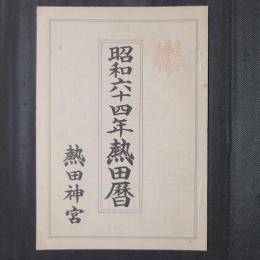 昭和六十四年熱田暦
熱田神宮